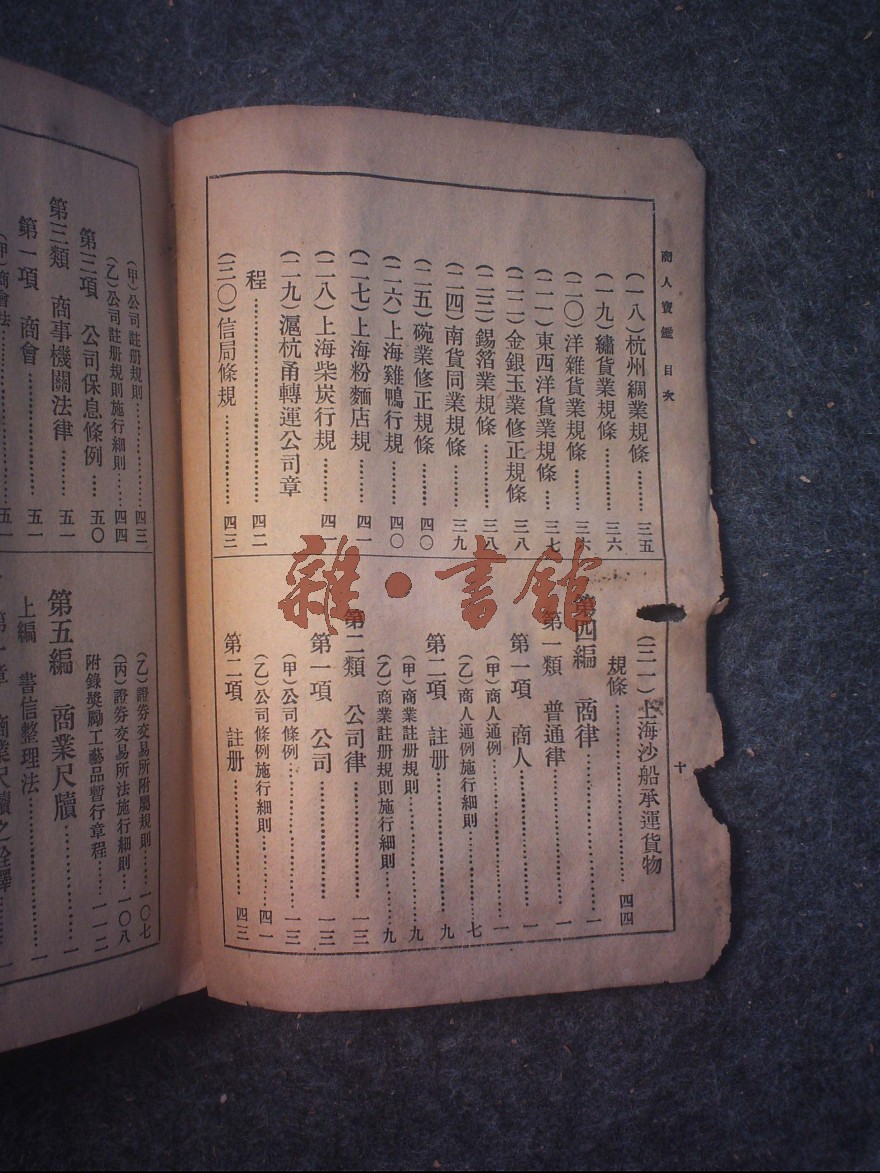 商人寶鑑 目次
(一八)杭州綢業規條………三五
(一九)繡貨業規條………三六
(二〇)洋雜貨業規條………三六
(二一)東西洋貨業規條…三七
(二二)金銀玉業修正規條 三八
(二三)錫箔業規條………三八
(二四)南貨同業規條………三九
(二五)碗業修正規條………四〇
(二六)上海雞鴨行規………四〇
(二七)上海粉麵店規………四一
(二八)上海柴炭行規………四一
(二九)滬杭甬轉運公司章
程………四二
(三〇)信局條規………四三
(三一)上海沙船承運貨物
規條………四四
第四編 商律………一
第一類 普通律………一
第一項 商人………一
(甲)商人通例………一
(乙)商人通例施行細則………七
第二項 註册………九
(甲)商業註册規則………九
(乙)商業註册規則施行細則………九
第二類 公司律………一三
第一項 公司………一三
(甲)公司條例………一三
(乙)公司條例施行細則………四一
第二項 註册………四三
十
(甲)公司註册規則………四三
(乙)公司註册規則施行細則………四四
第三項 公司保息條例…五〇
第三類 商事機關法律…五一
第一項 商會………五一
(甲)商會法………五一
(乙)證券交易所附屬規則………一〇七
(丙)證券交易所法施行細則………一〇八
附錄獎勵工藝品暫行章程………一一二
第五編 商業尺牘………一
上編 書信整理法………一
第一章 商業尺牘之詮釋………一
雜·書館